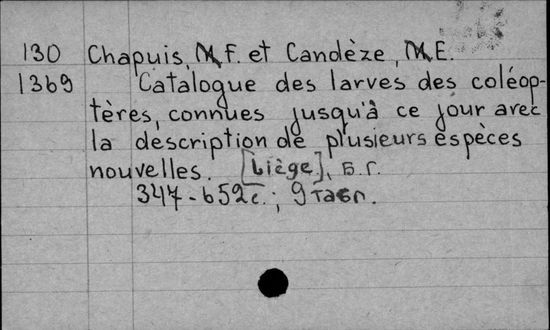 130 Chapuis, M F. et Candèze, M E.
1369 Catalogue des larves des coléop-
tères, connues jusqu'à ce jour avec
la description de plusieurs espèces
nouvelles. [Liège], Б.Г.
347-652с.; 9 табл.